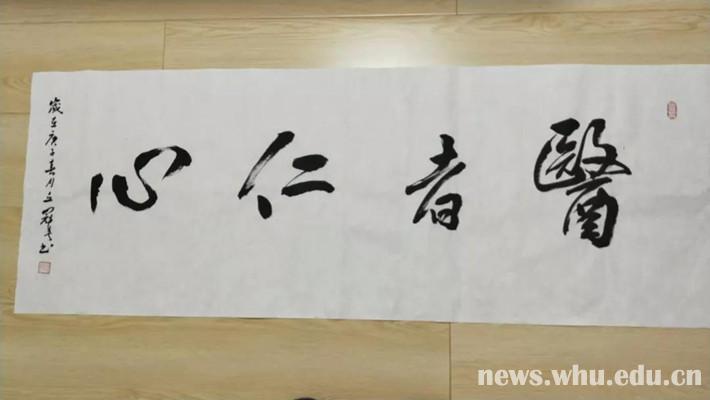 醫者仁心
歲在庚子春月
news.whu.edu.cn